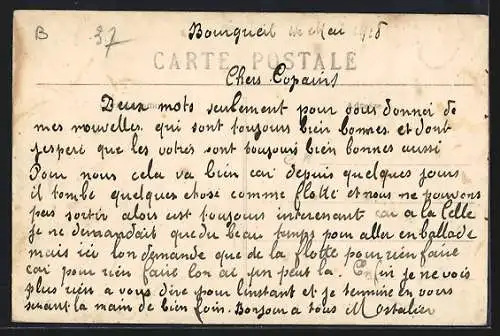 B 37 Bourgueil le Mai 1918
CARTE POSTALE
Chers Copains
Deux mots seulement pour vous donner de
mes nouvelles qui sont toujours bien bonnes et dont
jesperé que les votres sont toujours bien bonnes aussi
Pour nous cela va bien car depuis quelques jours
il tombe quelques chose comme flotte et nous ne pouvons
pas sortir alors cest toujours interessant car a la Celle
je ne demandait que du beau temps pour aller en ballade
mais ici lon demande que de la flotte pour rien faire
car pour rien faire lon ai un peut la. Enfin je ne vois
plus rien a vous dire pour linstant et je termine en vous
serant la main de bien loin. Bonjour a tous